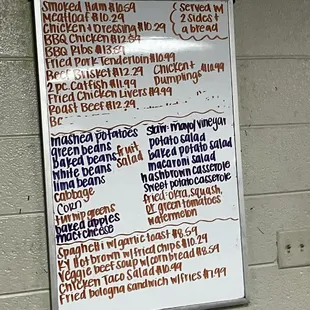 Smoked Ham $10.59
Meatloaf $10.29
Chicken + Dressing $10.29
BBQ Chicken $12.59
BBQ Ribs $13.59
Fried Pork Tenderloin $10.99
Beef Brisket $12.29
2 pc. Catfish $11.99
Fried Chicken Livers $9.99
Roast Beef $12.29
Served w/
2 sides +
a bread
Chicken + $10.99
Dumplings
mashed potatoes
green beans
baked beans
white beans
lima beans
cabbage
corn
turnip greens
baked apples
mac + cheese
fruit
salad
slaw: mayo/vinegar
potato salad
baked potato salad
macaroni salad
hashbrown casserole
sweet potato casserole
fried: okra, squash,
or green tomatoes
watermelon
Spaghetti w/ garlic toast $8.59
KY Hot brown w/ fried chips $10.29
Veggie beef soup w/ corn bread $8.59
Chicken Taco Salad $10.99
Fried bologna sandwich w/ fries $11.99